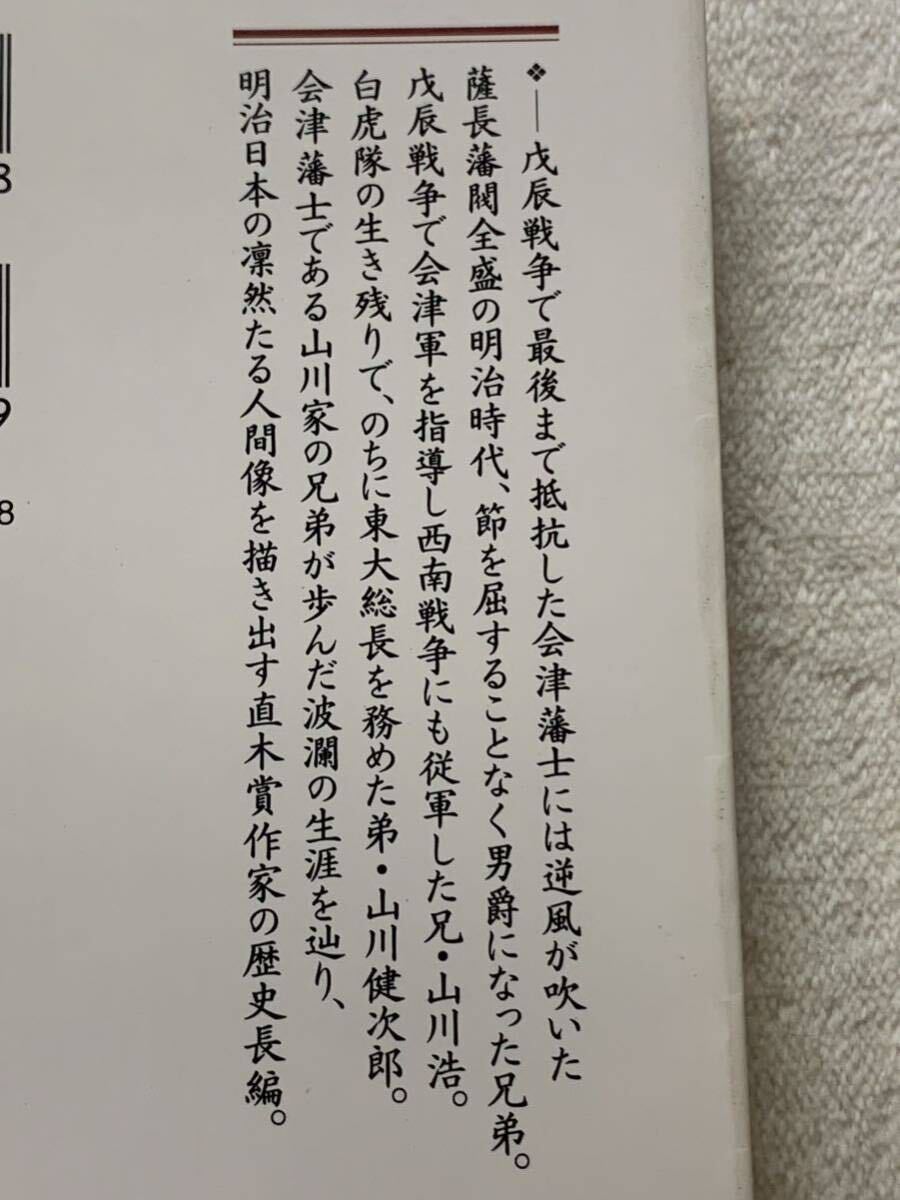 ❖―戊辰戦争で最後まで抵抗した会津藩士には逆風が吹いた
薩長藩閥全盛の明治時代、節を屈することなく男爵になった兄弟。
戊辰戦争で会津軍を指導し西南戦争にも従軍した兄・山川浩。
白虎隊の生き残りで、のちに東大総長を務めた弟・山川健次郎。
会津藩士である山川家の兄弟が歩んだ波瀾の生涯を辿り、
明治日本の凛然たる人間像を描き出す直木賞作家の歴史長編。
8
9
8